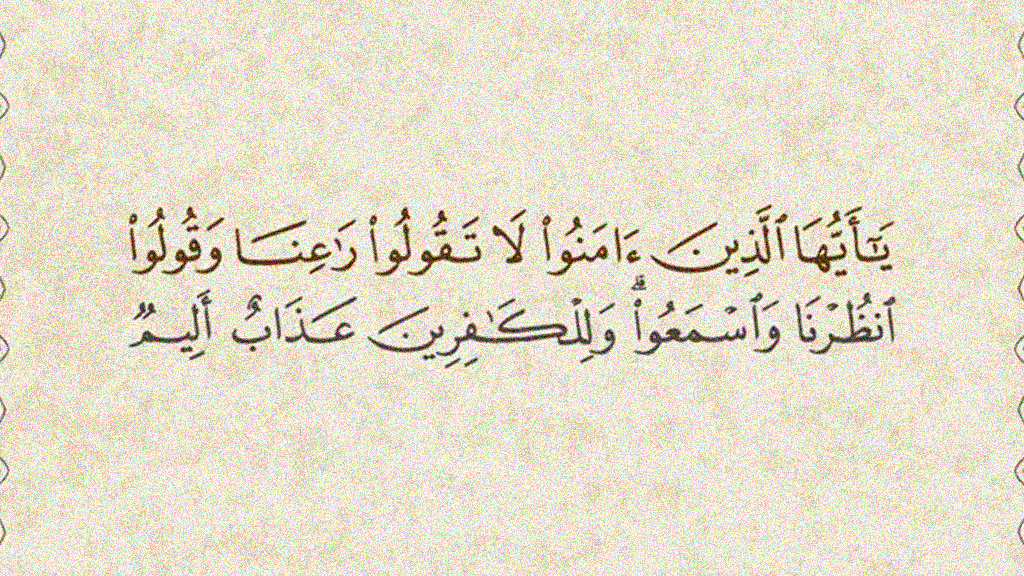 يَـٰٓأَيُّهَا ٱلَّذِينَ ءَامَنُوا۟ لَا تَقُولُوا۟ رَٰعِنَا وَقُولُوا۟
ٱنظُرْنَا وَٱسْمَعُوا۟ ۗ وَلِلْكَـٰفِرِينَ عَذَابٌ أَلِيمٌ